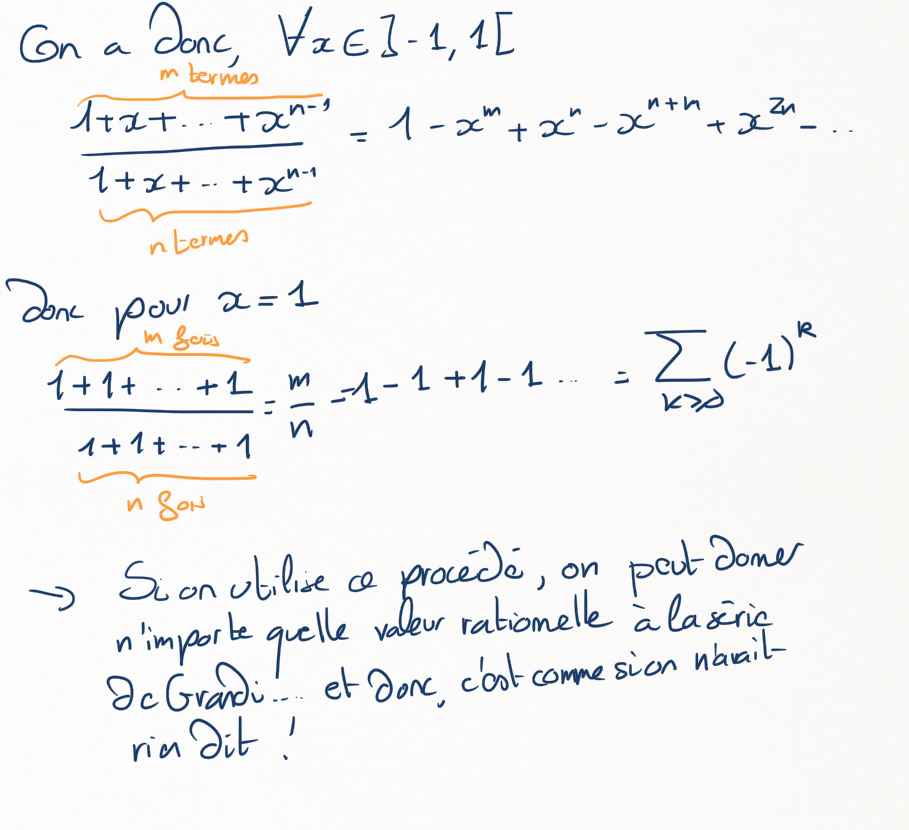 On a donc, ∀x ∈ ]-1, 1[
m termes
1+x+...+x^{n-1} / 1+x+...+x^{n-1} = 1 - x^m + x^n - x^{n+m} + x^{2n} - ...
n termes
donc pour x = 1
m fois
1+1+...+1 / 1+1+...+1 = m/n = 1 - 1 + 1 - 1 ... = ∑_{k≥0} (-1)^k
n fois
→ Si on utilise ce procédé, on peut donner
n'importe quelle valeur rationelle à la série
de Grandi.... et donc, c'est comme si on n'avait
rien dit !